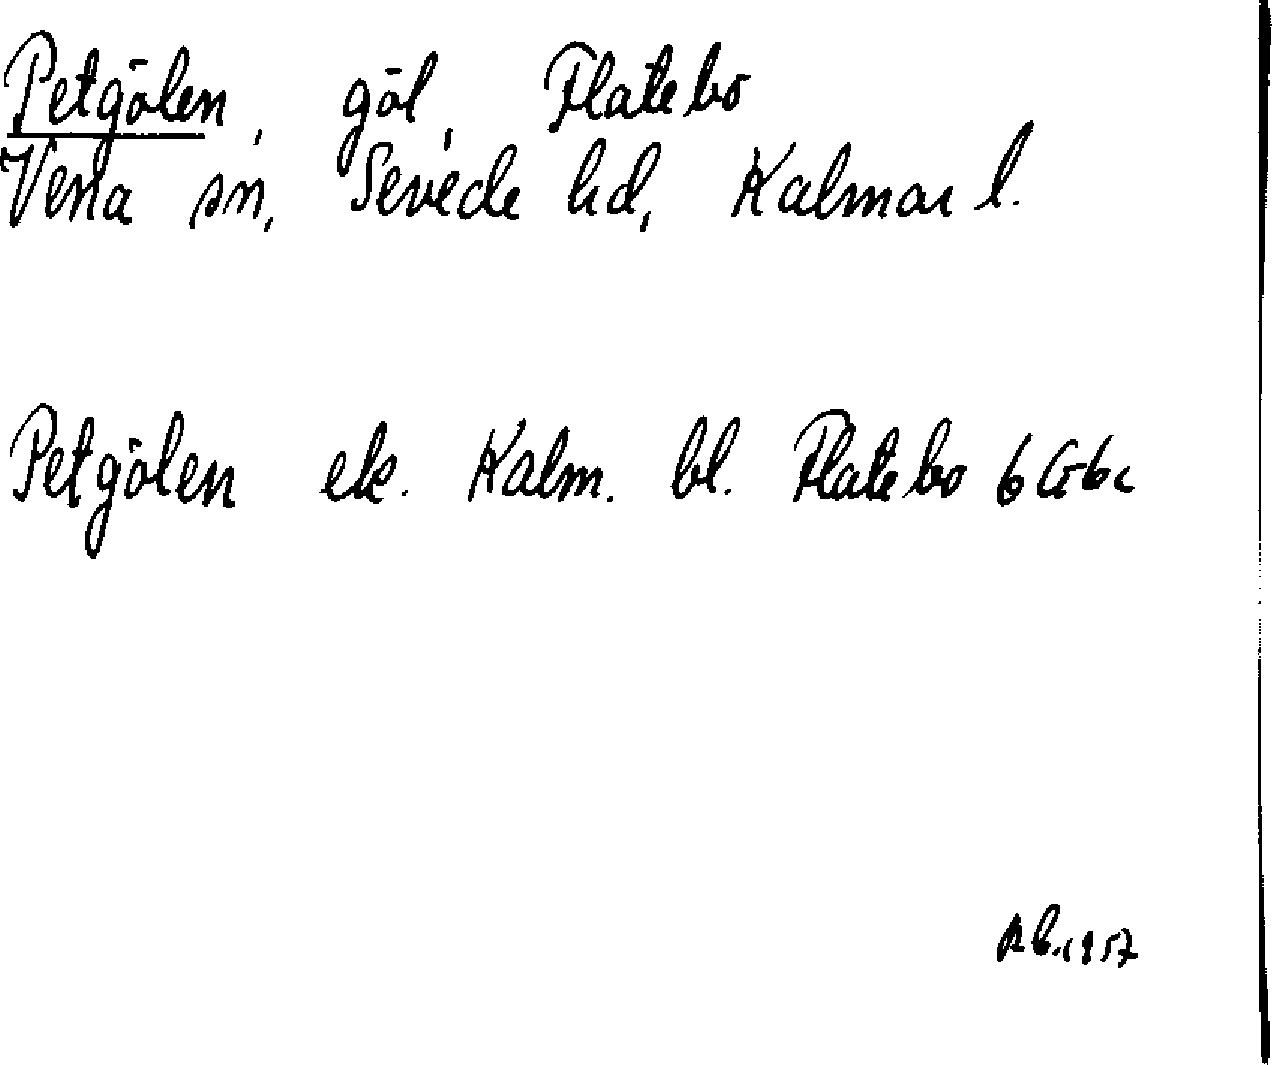 Petgölen, göl, Flatebo
Vena sn, Sevede hd, Kalmar l.
Petgölen ek. Kalm. bl. Flatebo 6G6c
Rb. 1957